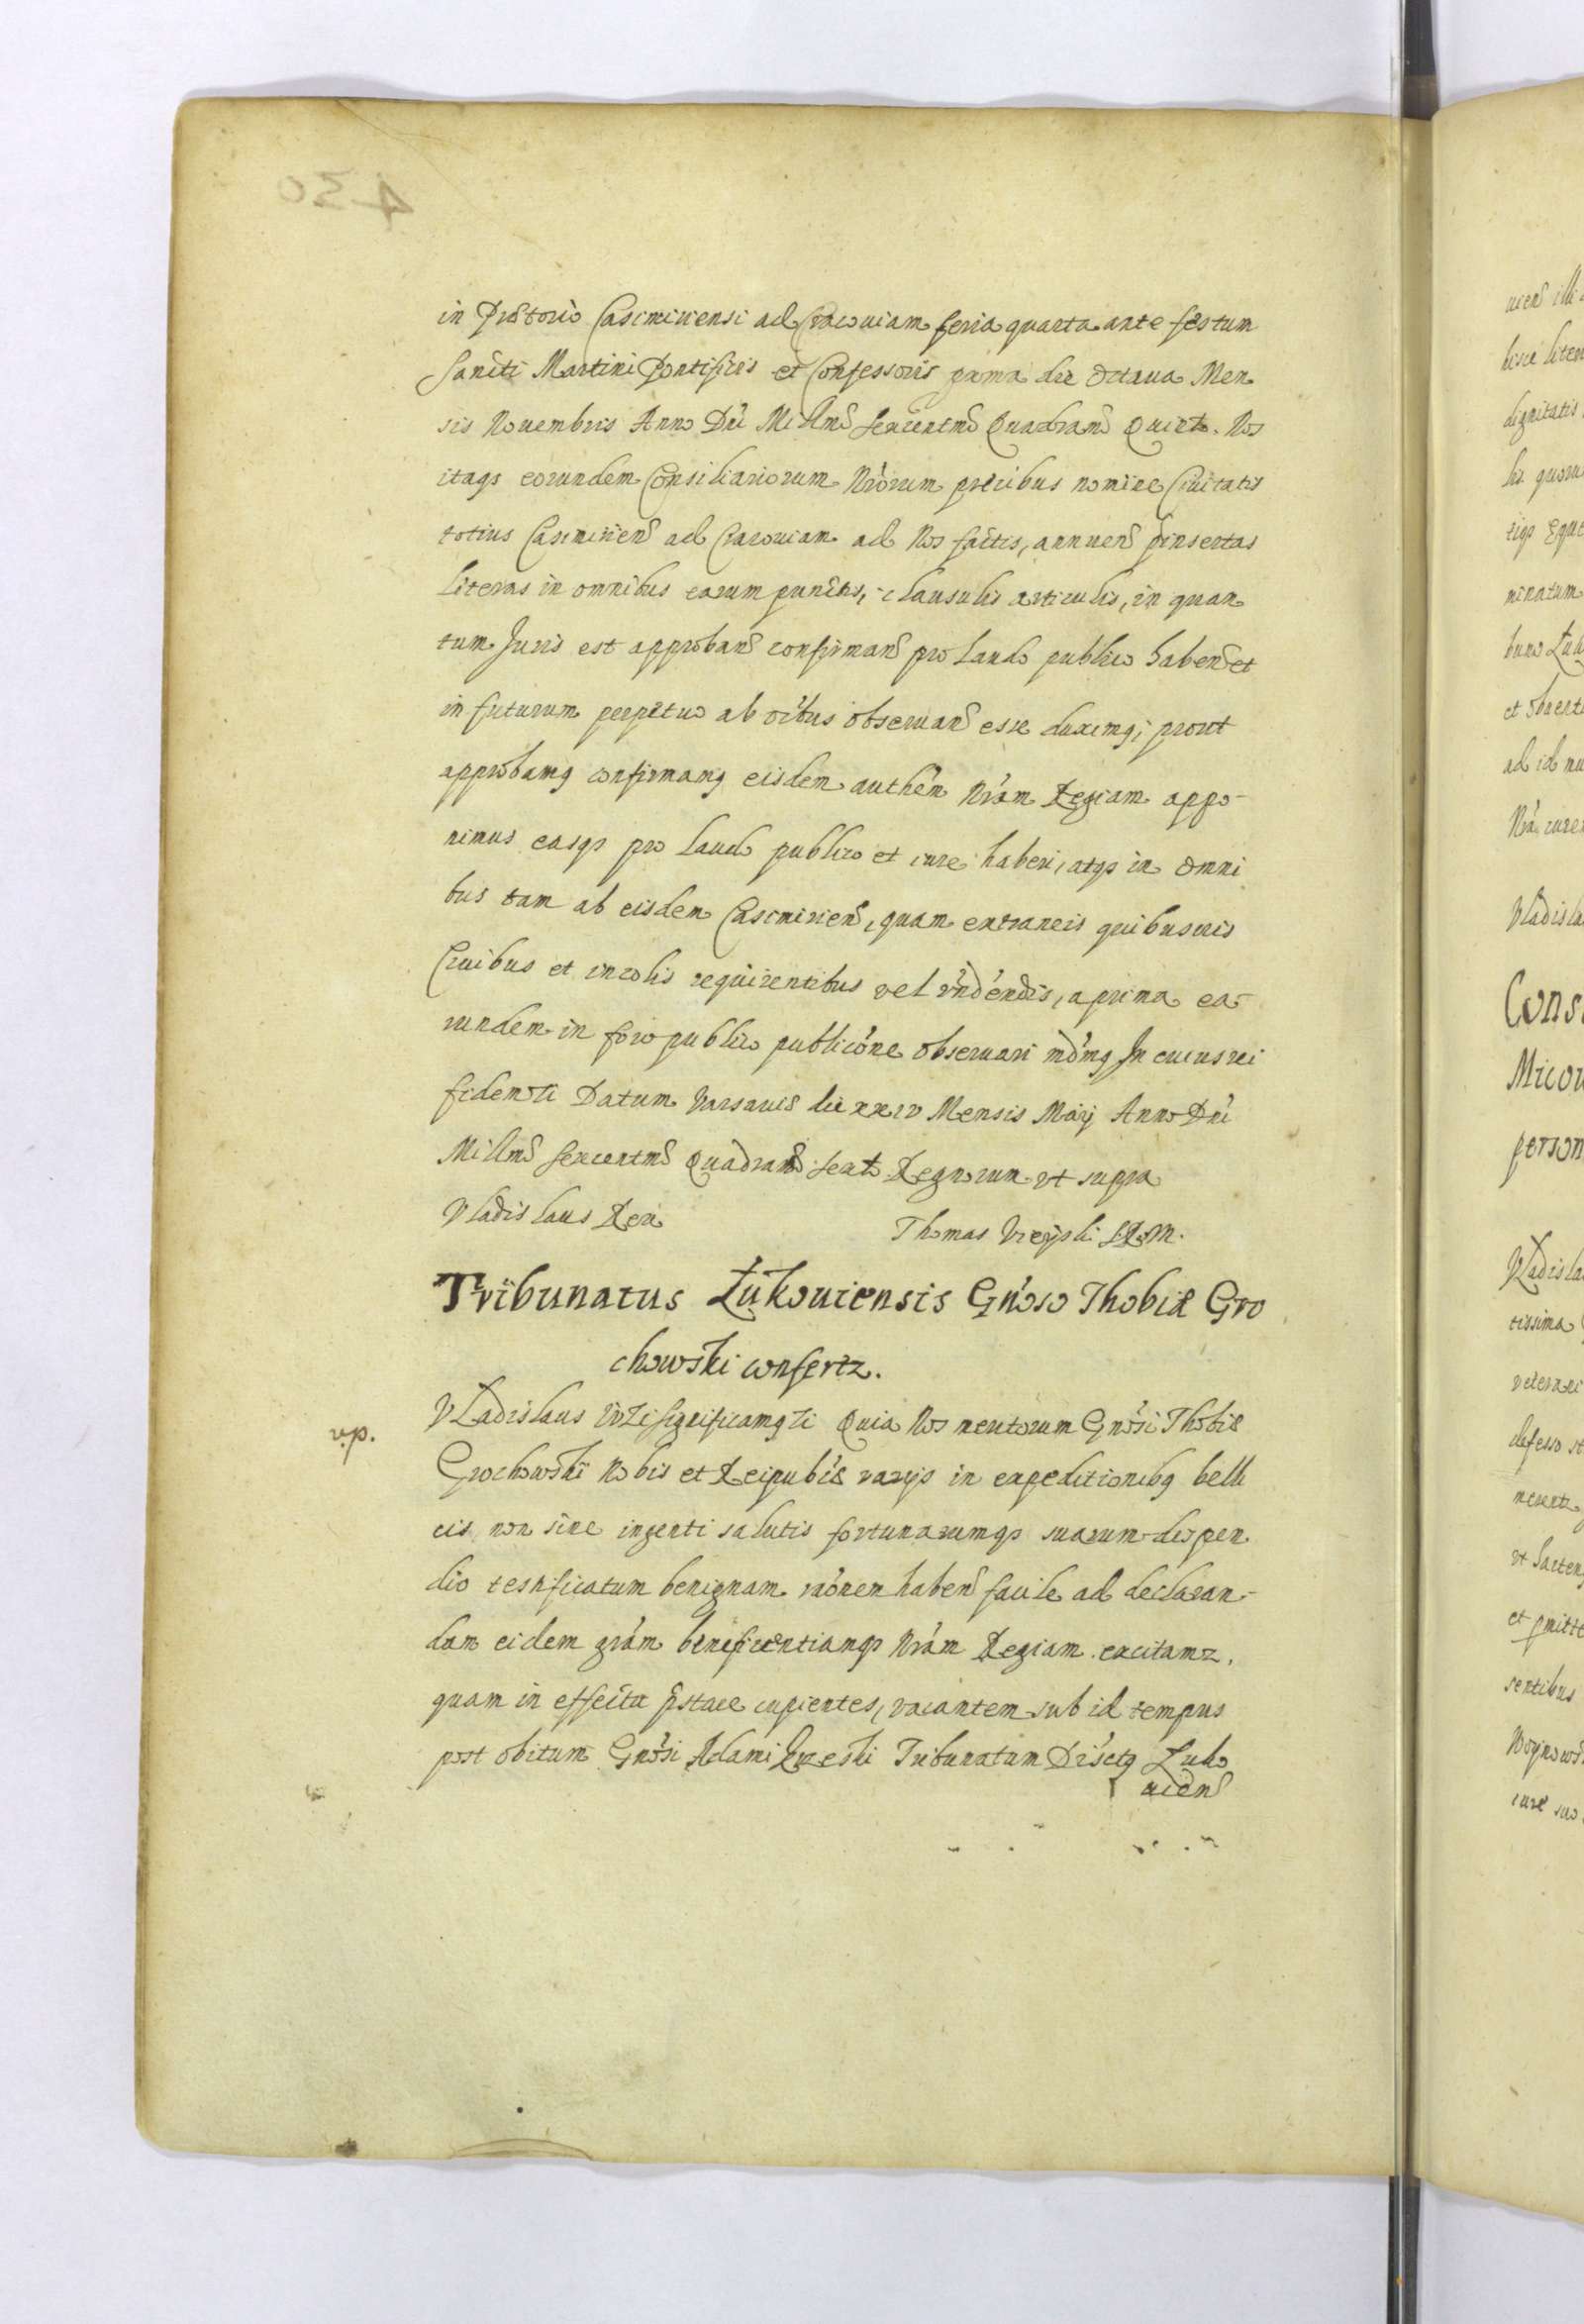 in Prætorio Casimiriensi ad Cracouiam feria quarta ante festum
Sancti Martini Pontificis et Confessoris prima die Octaua Men
sis Nouembris Anno Dni Millmo Sexcentmo Quadrano Quinto. Nos
itaqs eorundem Consiliariorum Nrorum precibus nomine Ciuitatis
totius Casimirien ad Cracouiam ad Nos factis, annuen pinsertas
literas in omnibus earum punctis, clausulis articulis, in quan
tum Juris est approban confirman pro Laudo publico haben et
in futurum perpetuo ab oibus obseruan esse duximq; prout
approbamq confirmamq eisdem authen Nram Regiam appo-
nimus easqs pro laudo publico et iure haberi, atqs in omni
bus tam ab eisdem Casimirien, quam extraneis quibusuis
Ciuibus et incolis requirentibus vel rndendis, a prima ea-
rundem in foro publico publicone obseruari mdmq In cuius rei
fidem Ti Datum Varsauiæ die xxiv Mensis Maij Anno Dni
Millmo sexcentmo Quadrano sexto Regnorum vt supra
Vladislaus Rex
Thomas Vieyski S.R.M.
Tribunatus Łukouiensis Gnoso Thobiæ Gro
chowski confertz.
v.p.
Vladislaus IVzi significamq Ti Quia Nos meritorum Gnosi Thobiæ
Grochowski Nobis et Reipubcæ varijs in expeditionibq belli
cis non sine ingenti salutis fortunarumqs suarum dispen
dio testificatum benignam raonem haben facile ad declaran-
dam eidem gram beneficentiamqs Nram Regiam excitamz,
quam in effectu pstare cupientes, vacantem sub id tempus
post obitum Gnosi Adami Tribunatum Disctq Luko
uien
430